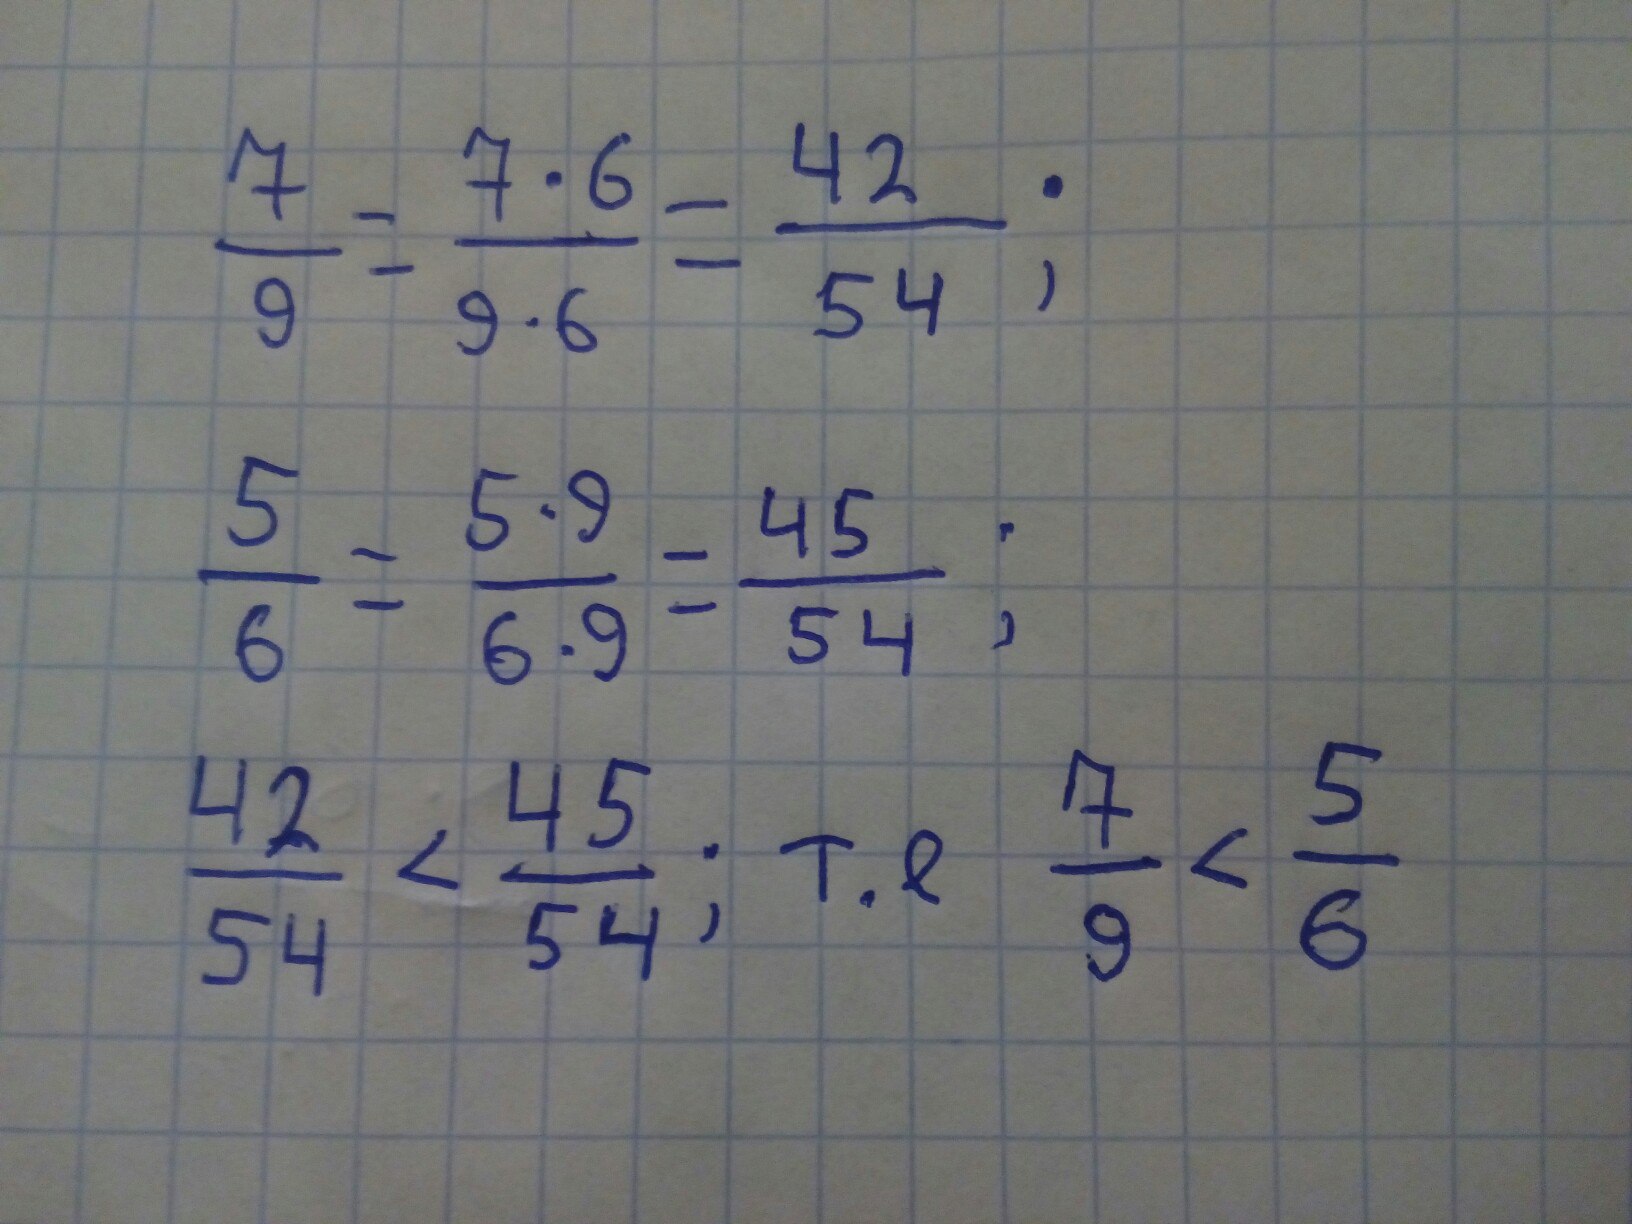 7/9 = 7·6/9·6 = 42/54 ;
5/6 = 5·9/6·9 = 45/54 ;
42/54 < 45/54 ; т.е 7/9 < 5/6